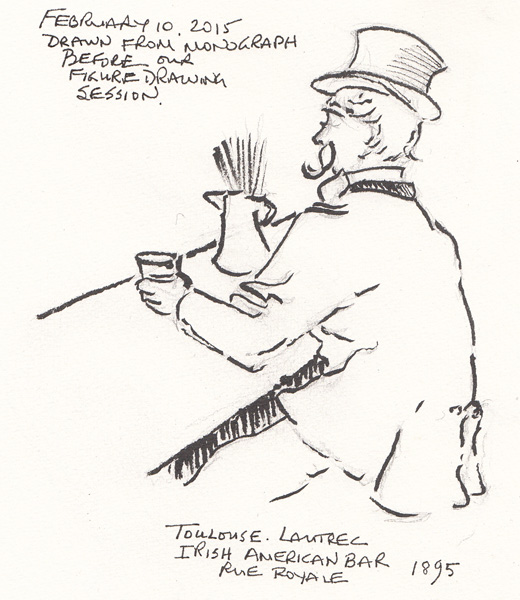 FEBRUARY 10. 2015
DRAWN FROM MONOGRAPH
BEFORE OUR
FIGURE DRAWING
SESSION.
TOULOUSE. LAUTREC
IRISH AMERICAN BAR
RUE ROYALE
1895